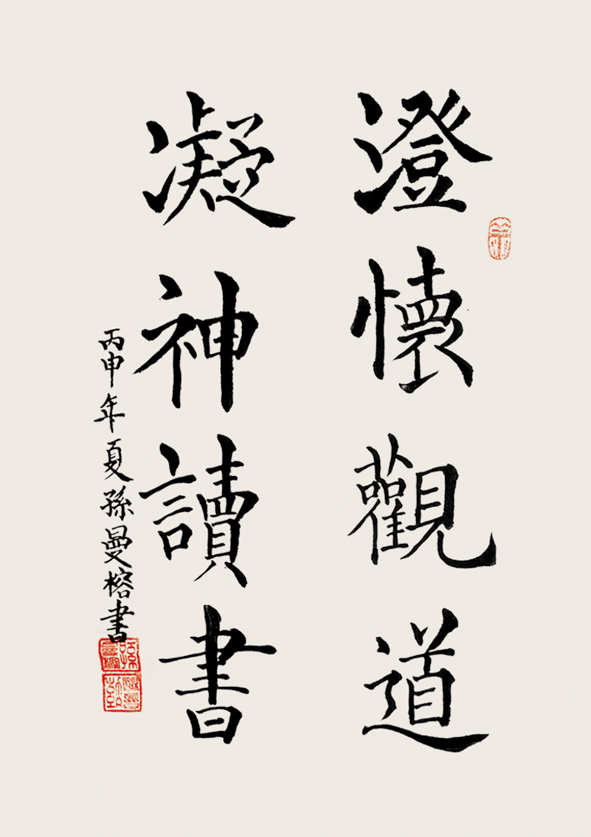 澄懷觀道
凝神讀書
丙申年夏孫曼榕書